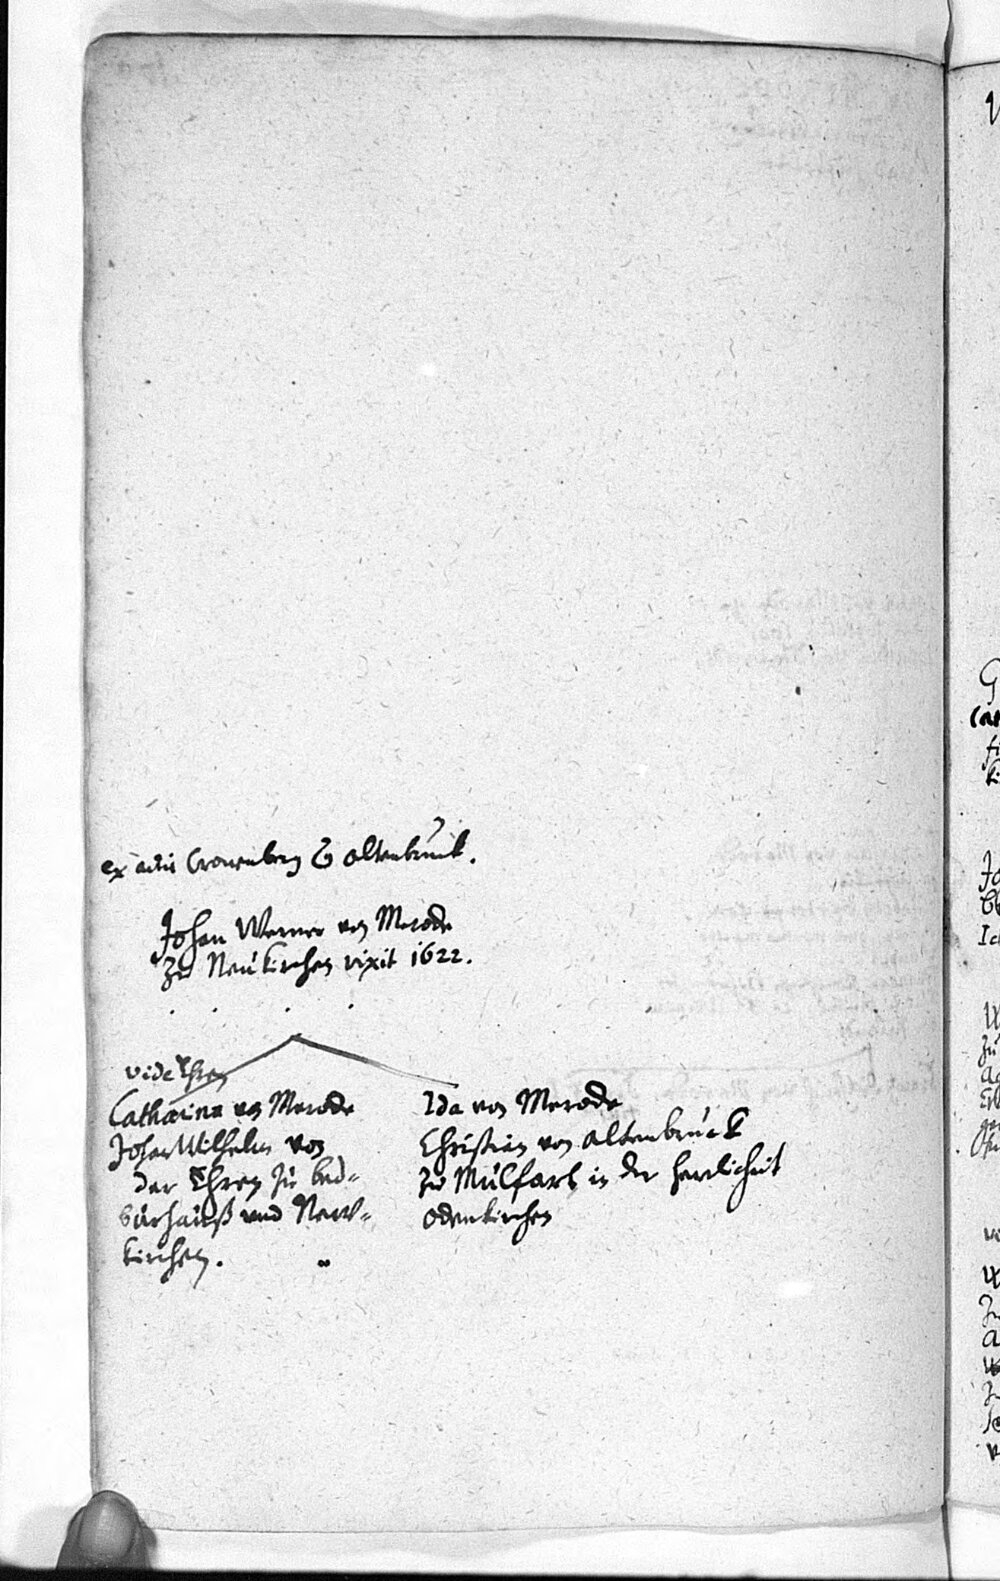 ex actis Cronenberg C Altenbruck.
Johan Werner von Merode
zu Neukirchen vixit 1622.
vide Ehren
Catharina von Merode
Johan Wilhelm von
der Ehren zu bed-
burhauß und New-
kirchen.
Ida von Merode
Christian von Altenbruck
zu Mülfart in der herrlicheit
Odenkirchen